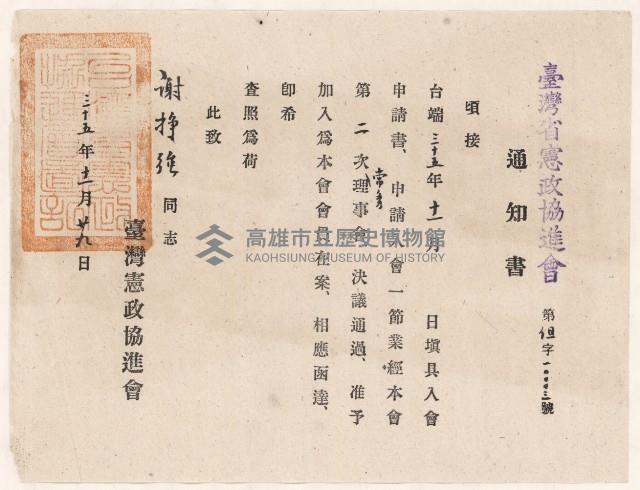 臺灣省憲政協進會
通知書
第組字一〇〇三號
頃接
台端三十五年十一月 日塡具入會
申請書、申請入會一節業經本會
第二次常務理事會決議通過、准予
加入爲本會會員在案、相應函達、
卽希
查照爲荷
此致
謝掙強同志
臺灣憲政協進會
三十五年十一月廿九日
高雄市立歷史博物館
KAOHSIUNG MUSEUM OF HISTORY